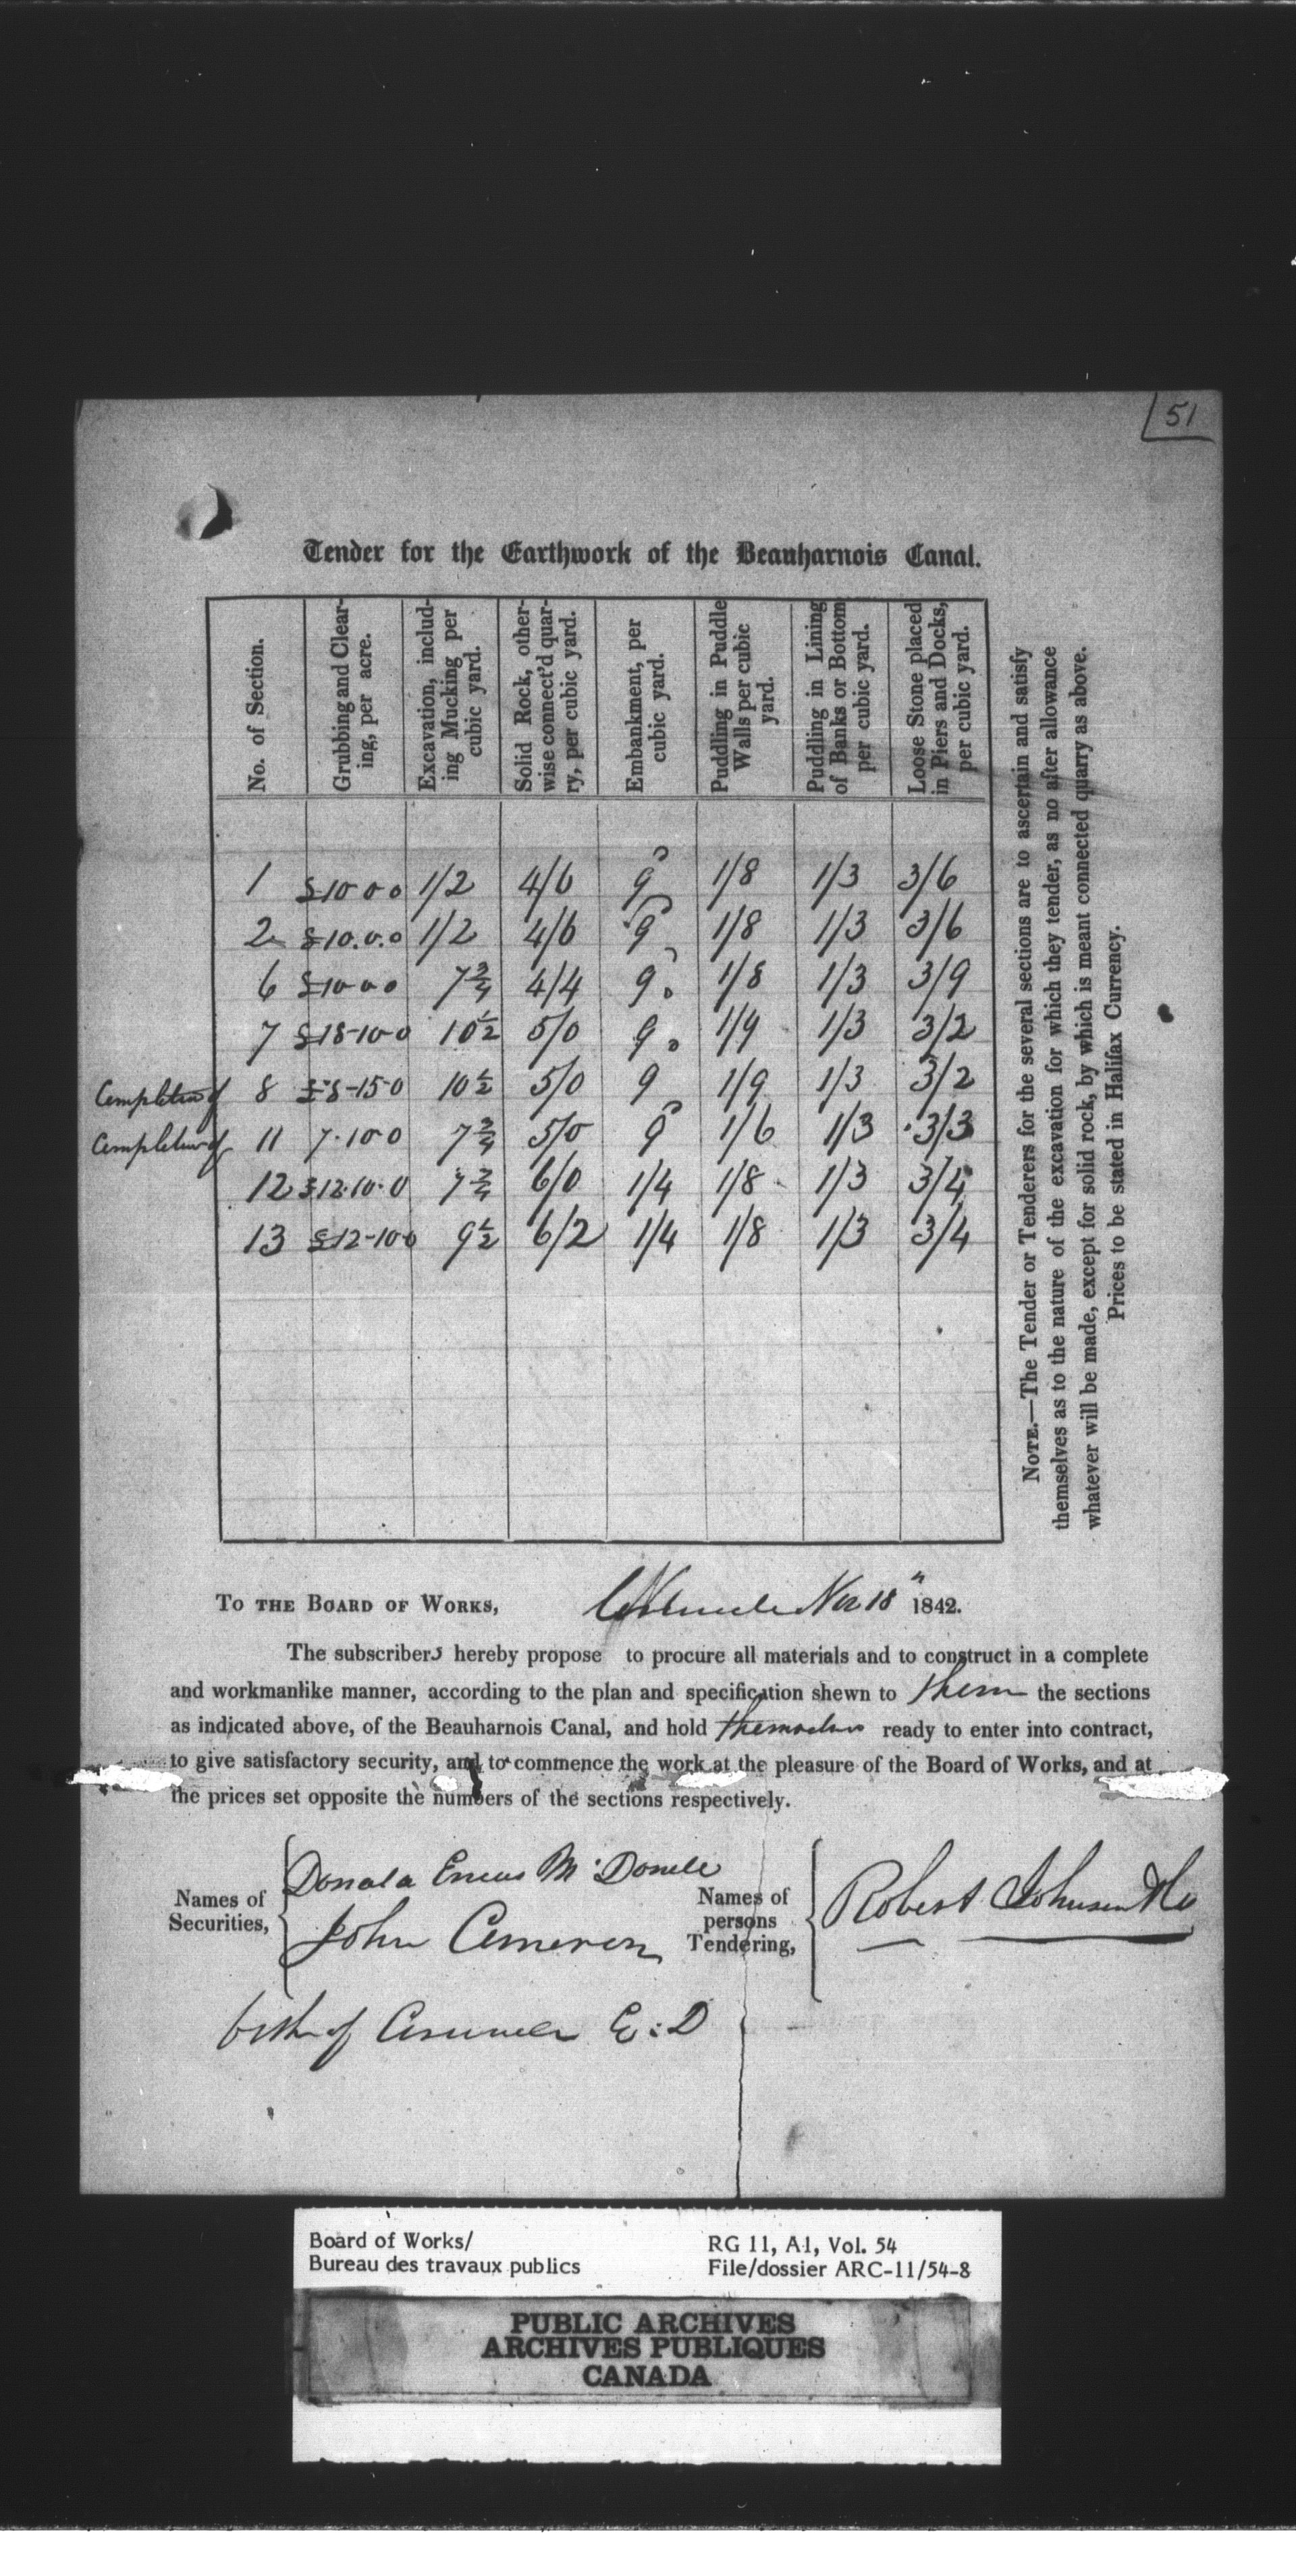 51
Tender for the Earthwork of the Beauharnois Canal.
No. of Section. | Grubbing and Clearing, per acre. | Excavation, including Mucking per cubic yard. | Solid Rock, otherwise connect'd quarry, per cubic yard. | Embankment, per cubic yard. | Puddling in Puddle Walls per cubic yard. | Puddling in Lining of Banks or Bottom per cubic yard. | Loose Stone placed in Piers and Docks, per cubic yard.
1 £10-0-0 1/2 4/6 9 1/8 1/3 3/6
2 £10.0.0 1/2 4/6 9 1/8 1/3 3/6
6 £10-0-0 7¾ 4/4 9 1/8 1/3 3/9
7 £18-10-0 10½ 5/0 9 1/9 1/3 3/2
Completion of 8 £8-15-0 10½ 5/0 9 1/9 1/3 3/2
Completion of 11 7-10-0 7¾ 5/0 9 1/6 1/3 3/3
12 £12-10-0 7¾ 6/0 1/4 1/8 1/3 3/4
13 £12-10-0 9½ 6/2 1/4 1/8 1/3 3/4
NOTE.—The Tender or Tenderers for the several sections are to ascertain and satisfy
themselves as to the nature of the excavation for which they tender, as no after allowance
whatever will be made, except for solid rock, by which is meant connected quarry as above.
Prices to be stated in Halifax Currency.
TO THE BOARD OF WORKS, Nov 18th 1842.
The subscribers hereby propose to procure all materials and to construct in a complete
and workmanlike manner, according to the plan and specification shewn to them the sections
as indicated above, of the Beauharnois Canal, and hold themselves ready to enter into contract,
to give satisfactory security, and to commence the work at the pleasure of the Board of Works, and at
the prices set opposite the numbers of the sections respectively.
Names of Securities, Donald Eneas McDonell
John Cameron
Names of persons Tendering, Robert Johnson & Co
both of E:D
Board of Works/
Bureau des travaux publics
RG 11, A1, Vol. 54
File/dossier ARC-11/54-8
PUBLIC ARCHIVES
ARCHIVES PUBLIQUES
CANADA